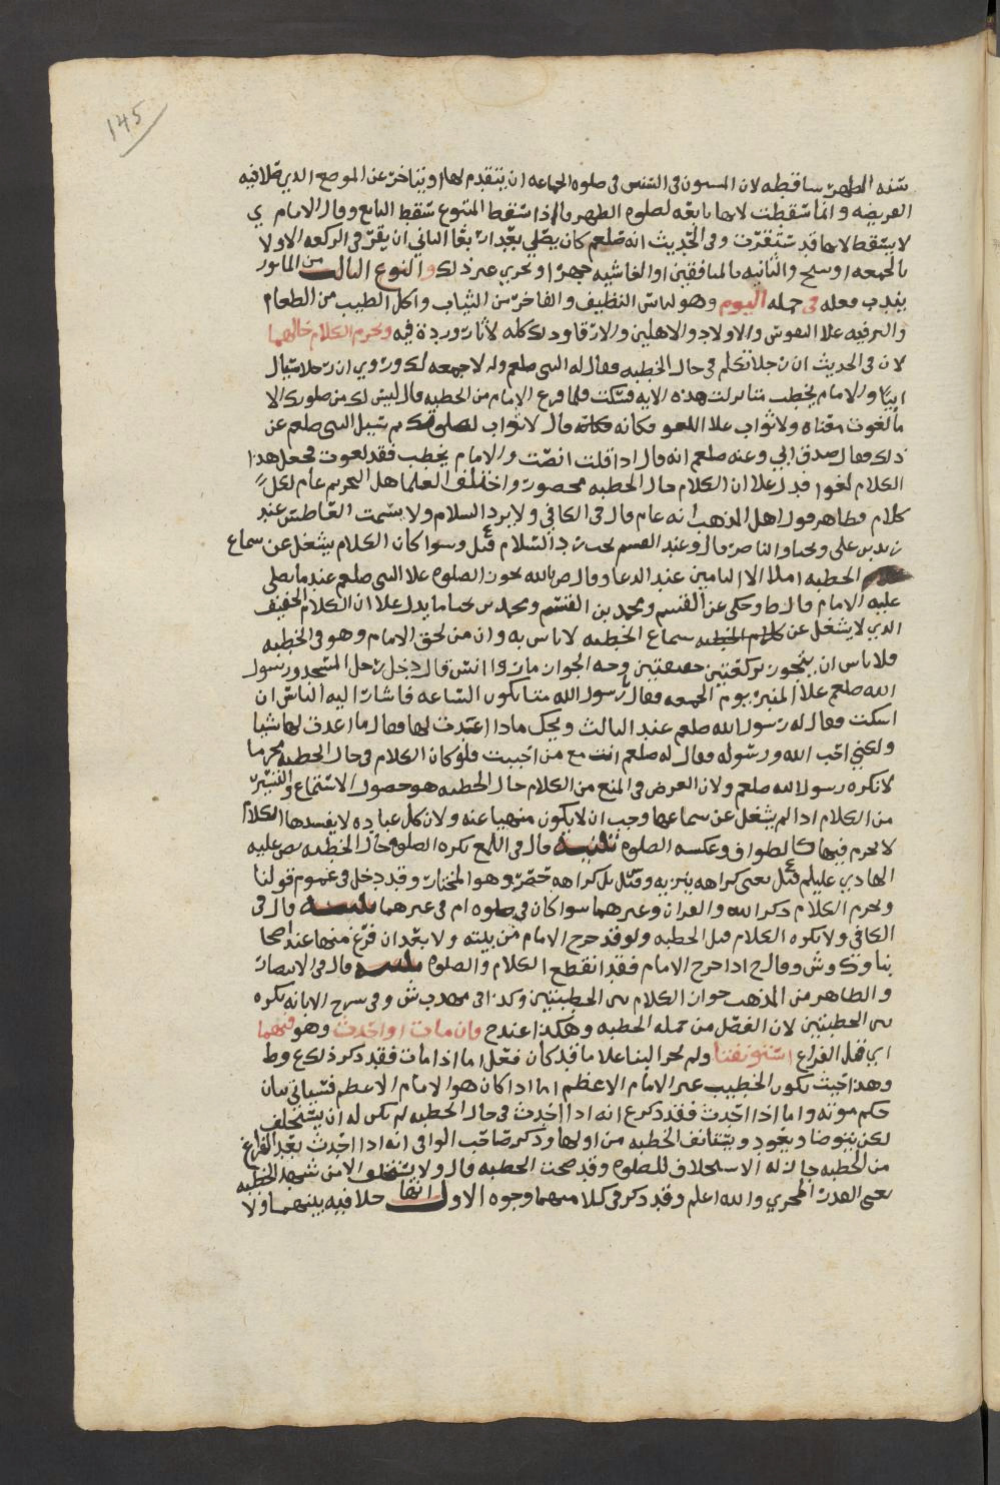 145
سنه الظهر ساقطه لان المسنون في السنن في صلوه الجماعه ان يتقدم لها او يتاخر عن الموضع الذي صلا فيه
الفريضه وانما سقطت لانها تابعه لصلوه الظهر فاذا سقط المتبوع سقط التابع وقال الامام ي
لا يسقط لانها قد ستقرت وفي الحديث انه صلعم كان يصلي بعدها اربعا الثاني ان يقرا في الركعه الاولا
بالجمعه او سبح والثانيه بالمنافقين او الغاشيه جهرا ويجزي غير ذلك والنوع الثالث من المامور
يندب فعله في جمله اليوم وهو لباس النظيف والفاخر من الثياب واكل الطيب من الطعام
والترفيه علا النفوس والاولاد والاهلين والارقا وذلك كله لاثار وردة فيه ويحرم الكلام حالهما
لان في الحديث ان رجلا تكلم في حال الخطبه فقال له النبي صلعم وله لا جمعه لك وروي ان رجلا سال
ابيا والامام يخطب متا نزلت هذه الايه فسكت فلما فرغ الامام من الخطبه قال ليس لك من صلوتك الا
ما لغوت معناه ولا ثواب علا اللغو فكانه قال لا ثواب لصلوتك ثم سيل النبي صلعم عن
ذلك فقال صدق ابي وعنه صلعم انه قال اذا قلت انصت والامام يخطب فقد لغوت فجعل هذا
الكلام لغوا فدل علا ان الكلام حال الخطبه محصور واختلف العلما هل التحريم عام لكل
كلام فظاهر قول اهل المذهب انه عام قال في الكافي ولا يرد السلام ولا يسمت العاطس عند
زيد بن علي ويحيا والناصر قال وعند القسم يجب رد السلام قيل وسوا كان الكلام يشغل عن سماع
الخطبه ام لا الا التامين عند الدعا وقال ص بالله يجوز الصلوه علا النبي صلعم عند ما يصلي
عليه الامام قال ط وحكى عن القسم ومحمد بن القسم ومحمد بن يحيا ما يدل علا ان الكلام الخفيف
الذي لا يشغل عن سماع الخطبه لا باس به وان من لحق الامام وهو في الخطبه
فلا باس ان يتجوز بركعتين خفيفتين وجه الجواز ما روا انس قال دخل رجل المسجد ورسول
الله صلعم علا المنبر يوم الجمعه فقال يرسول الله متا تكون الساعه فاشار اليه الناس ان
اسكت فقال له رسول الله صلعم عند الثالث ويحك ماذا اعددت لها فقال ما اعددت لها شيا
ولكني احب الله ورسوله فقال له صلعم انت مع من احببت فلو كان الكلام في حال الخطبه محرما
لانكره رسول الله صلعم ولان الغرض في المنع من الكلام حال الخطبه هو حصول الاستماع والتيسر
من الكلام اذا لم يشغل عن سماعها وجب ان لا يكون منهيا عنه ولان كل عباده لا يفسدها الكلام
لا يحرم فيها كالطواف وعكسه الصلوه تنبيه قال في اللمع يكره الصلوه حال الخطبه نص عليه
الهادي عليلم قيل يعني كراهه تنزيه وقيل بل كراهه حضر وهو المختار وقد دخل في عموم قولنا
ويحرم الكلام ذكر الله والقران وغيرهما سوا كان في صلوه ام في غيرهما تنبيه قال في
الكافي ولا يكره الكلام قبل الخطبه ولو قد خرج الامام من بيته ولا بعد ان فرغ منها عند اصحا
بنا وك وش وقال ح اذا خرج الامام فقد انقطع الكلام والصلوه تنبيه قال في الانتصار
والظاهر من المذهب جواز الكلام بين الخطبتين وكذا في مهذب ش وفي شرح الابانه يكره
بين الخطبتين لان الفصل من جمله الخطبه وهكذا عند ح فان مات او احدث وهو فيهما
اي قبل الفراغ استونفتا ولم يجز البنا علا ما قد كان فعل اما اذا مات فقد ذكر ذلك ع وط
وهذا حيث يكون الخطيب غير الامام الاعظم اما اذا كان هو الامام الاعظم فسياتي بيان
حكم موته واما اذا احدث فقد ذكر ع انه اذا احدث في حال الخطبه لم يكن له ان يستخلف
لكن يتوضا ويعود ويستانف الخطبه من اولها وذكر صاحب الوافي انه اذا احدث بعد الفراغ
من الخطبه جاز له الاستخلاف للصلوه وقد صحت الخطبه قال ولا يستخلف الا من شهد الخطبه
يعني القدر المجزي والله اعلم وقد ذكر في كلامهما وجوه الاول انها خلا فيه بينهما ولا